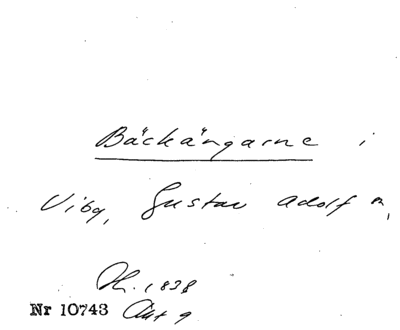 Bäckängarne i
Viby, Gustav Adolf
1838
Nr 10743 Akt 9